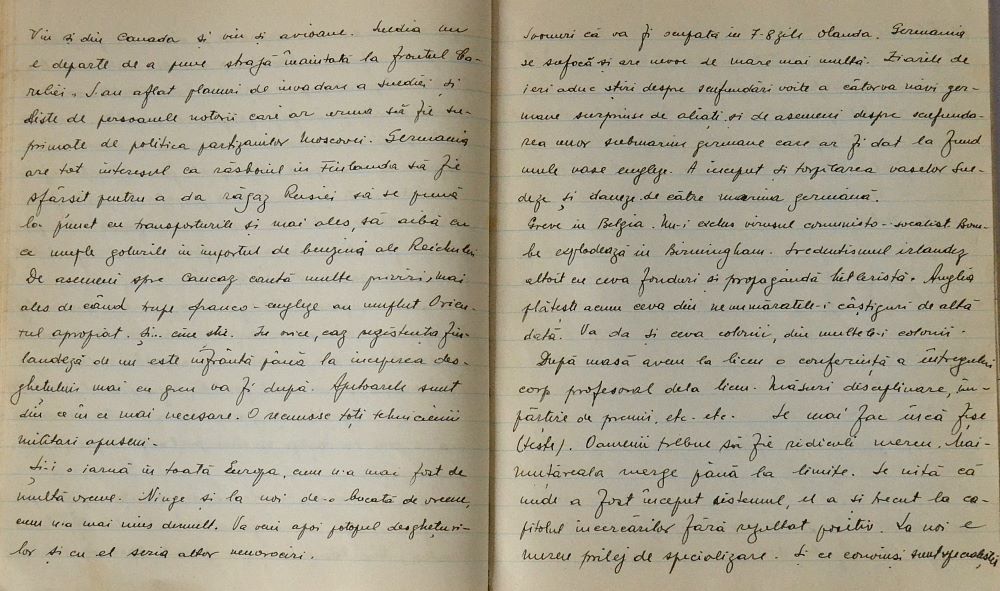 Vin și din Canada și vin și avioane. Suedia nu
e departe de a pune strajă înaintată la frontul Ca-
reliei. S'au aflat planuri de invadare a Suediei și
liste de persoanele notorii care ar urma să fie su-
primate de politica partizanilor Moscovei. Germania
are tot interesul ca războiul în Finlanda să fie
sfârșit pentru a da răgaz Rusiei să se pună
la punct cu transporturile și mai ales, să aibă cu
ce umple golurile în importul de benzină ale Reichului
De asemeni spre Caucaz caută multe priviri, mai
ales de când trupe franco-engleze au umflut Orien-
tul apropiat. Și... cine știe. In orice, caz rezistența fin-
landeză de nu este înfrântă până la începerea des-
ghețului mai cu greu va fi după. Ajutoarele sunt
din ce în ce mai necesare. O recunosc toți tehnicienii
militari apuseni.
Și-i o iarnă în toată Europa, cum n-a mai fost de
multă vreme. Ninge și la noi de-o bucată de vreme,
cum n-a mai nins demult. Va veni apoi potopul desghețuri-
lor și cu el seria altor nenorociri.
Svonuri că va fi ocupată in 7-8 zile Olanda. Germania
se sufocă și are nevoe de mare mai multă. Ziarele de
ieri aduc știri despre scufundări voite a câtorva navi ger-
mane surprinse de aliați și de asemeni despre scufunda-
rea unor submarine germane care ar fi dat la fund
unele vase engleze. A început și torpilarea vaselor Sue-
deze și daneze de către marina germană.
Greve in Belgia. Nu-i exclus virusul comunisto-socialist Bom-
be explodează in Birmingham. Iredentismul irlandez
altoit cu ceva fonduri si propagandă hitleristă. Anglia
plătește acum ceva din nenumăratele-i câștiguri de altă
dată. Va da și ceva colonii, din multele-i colonii.
După masă avem la liceu o conferință a întregului
corp profesoral dela liceu. Măsuri disciplinare, îm-
părțire de premii, etc. etc. Se mai fac încă fișe
(teste). Oamenii trebue să fie ridiculi mereu. Mai-
muțăreala merge până la limite. Se uită că
unde a fost început sistemul, el a si trecut la ca-
pitolul încercărilor fără rezultat pozitiv. La noi e
mereu prilej de specializare. Și ce convinși sunt specialiștii